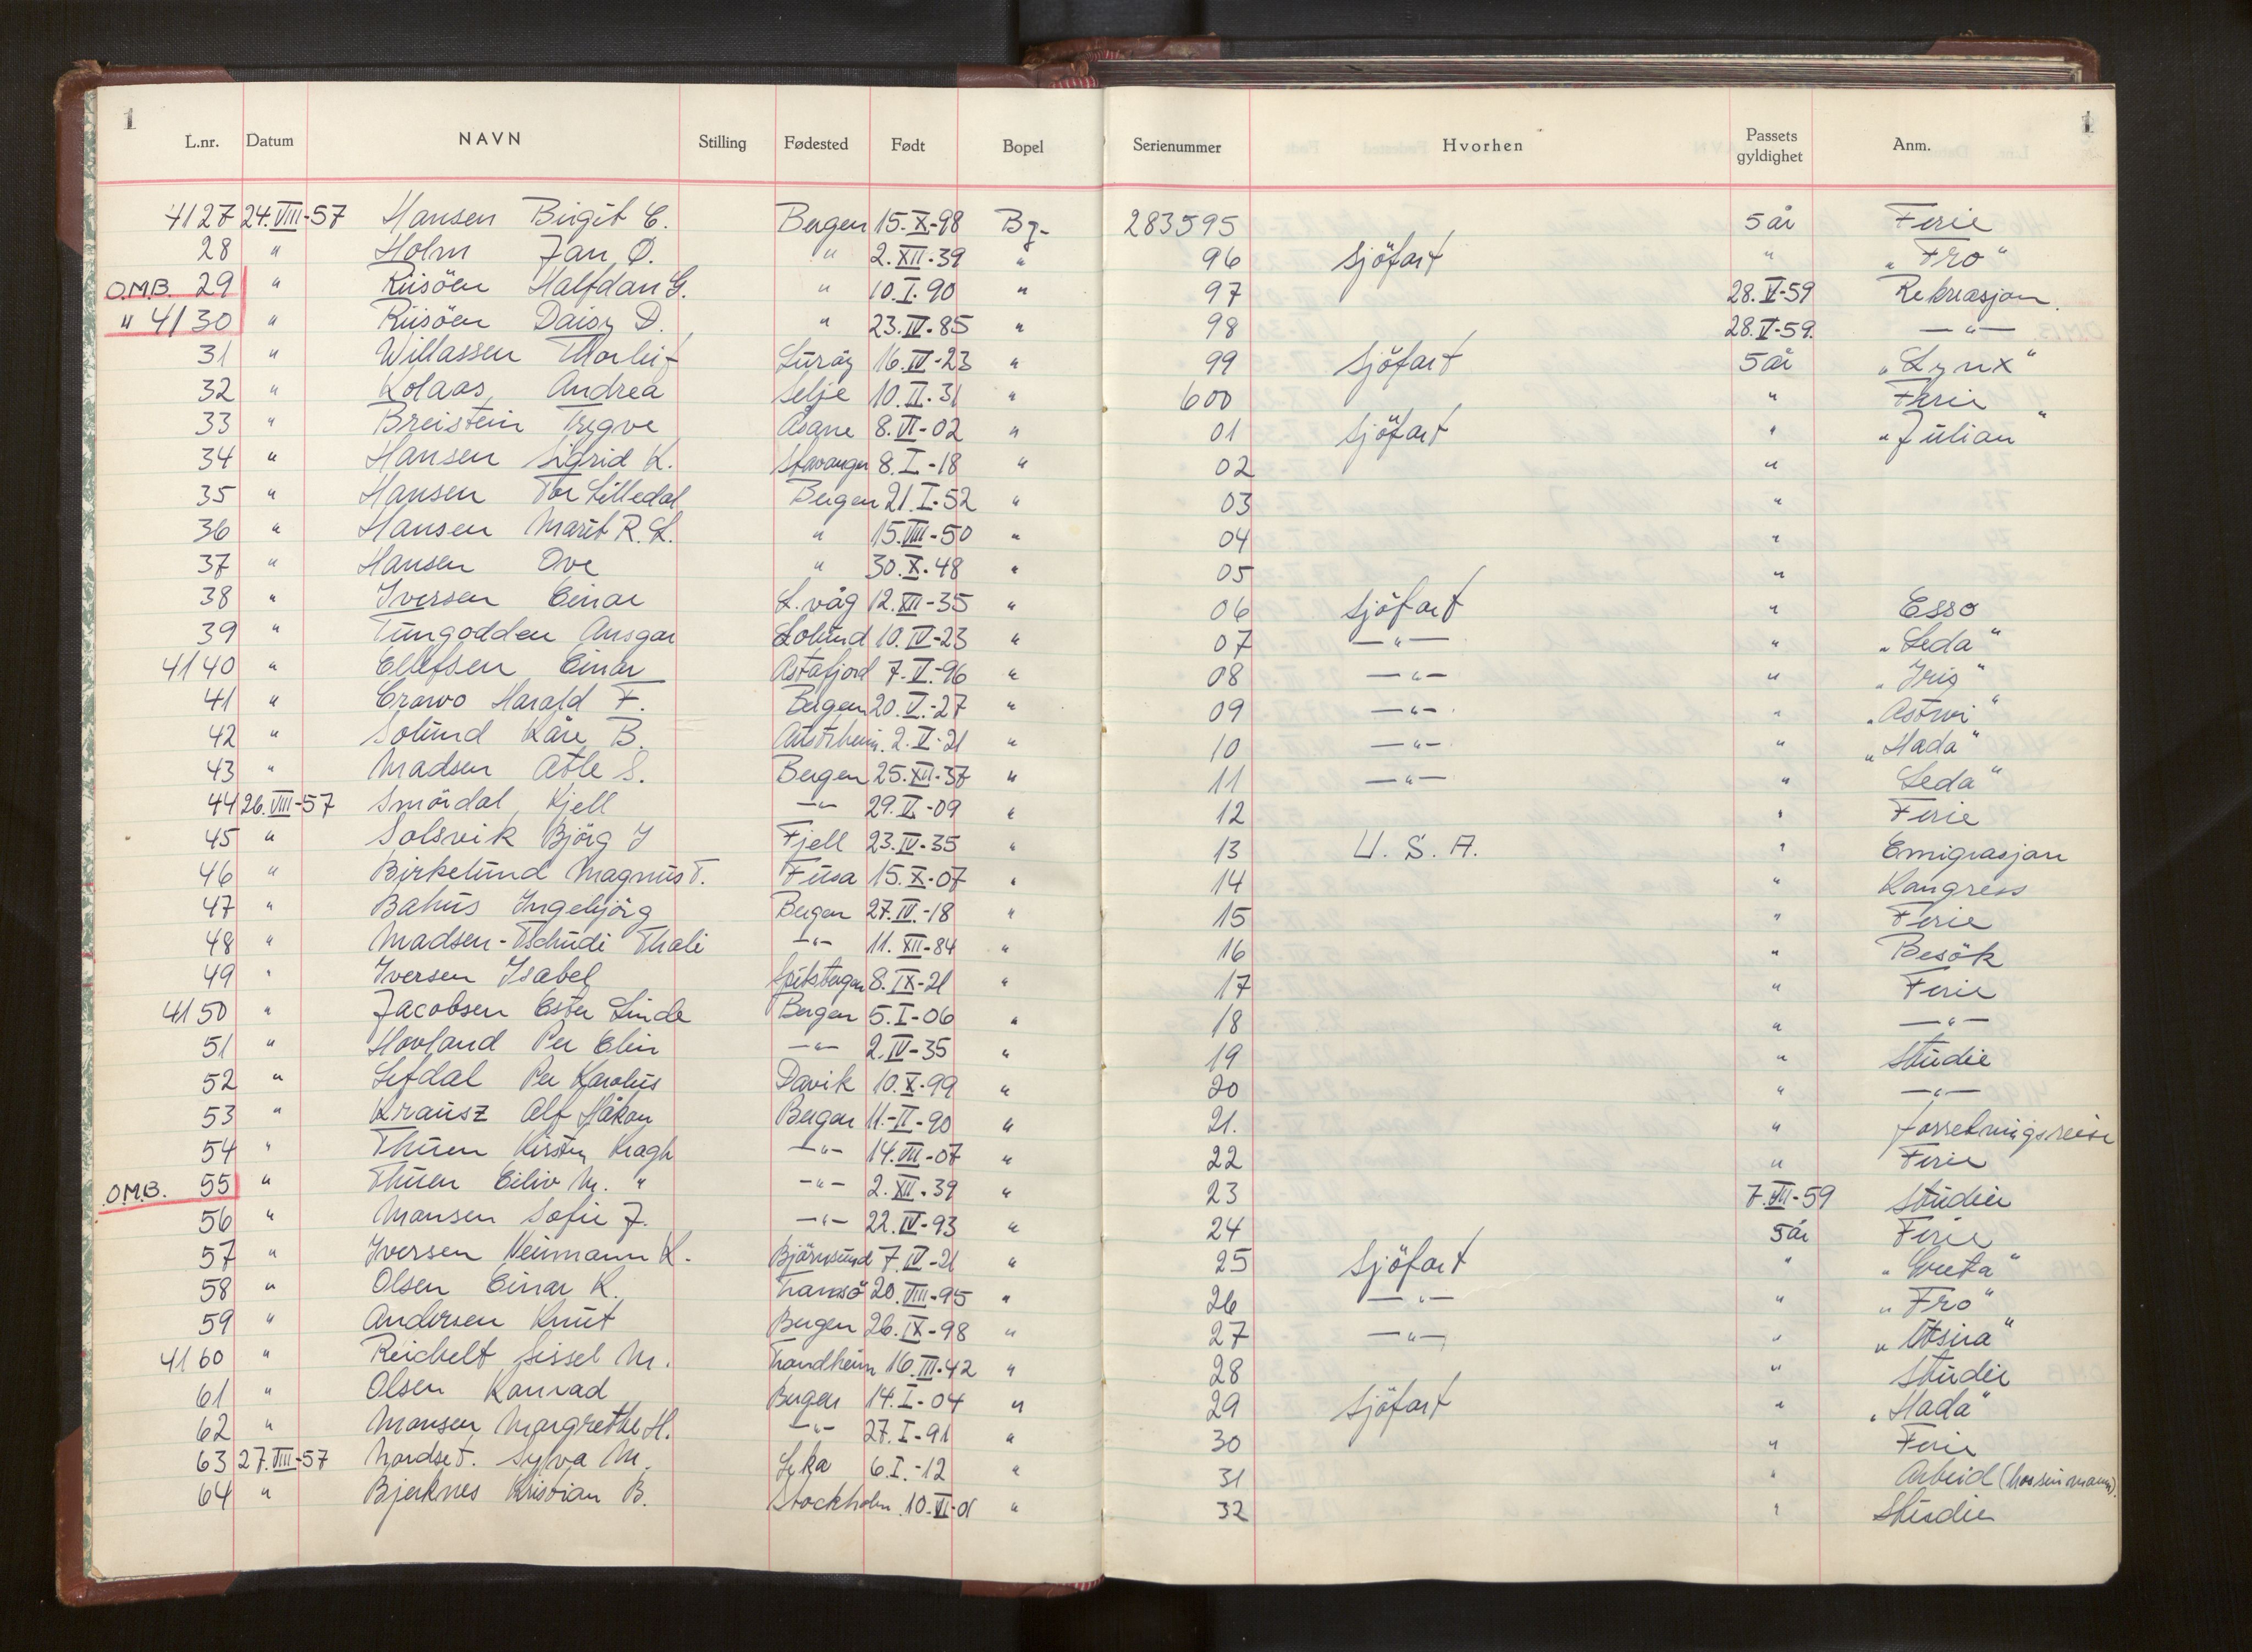 1 1
L.nr. Datum NAVN Stilling Fødested Født Bopel Serienummer Hvorhen Passets gyldighet Anm.
4127 24.VIII-57 Hansen Birgit E. Bergen 15.X-98 Bg- 283595 5 år Ferie
28 " Holm Jan Ø. " 2.XII.39 " 96 Sjöfart " "Fro"
O.M.B. 29 " Riisöen Halfdan G. " 10.I.90 " 97 28.V-59 Rekreasjon.
" 4130 " Riisöen Daisy D. " 23.IV.85 " 98 28.V-59. —"—
31 " Willassen Thorleif Luröy 16.IV-23 " 99 Sjöfart 5 år "Lynx"
32 " Kolaas, Andrea Selje 10.II.31 " 600 " Ferie
33 " Breistein Trygve Åsane 8.VI-02 " 01 Sjöfart " "Julian"
34 " Hansen Sigrid K. Stavanger 8.I-18 " 02 "
35 " Hansen Tor Lilledal Bergen 21.I.52 " 03 "
36 " Hansen Marit R. L. " 15.VIII-50 " 04 "
37 " Hansen Ove " 30.X.48 " 05 "
38 " Iversen Einar L.våg 12.XII-35 " 06 Sjöfart " Esso
39 " Tungodden Ansgar Solund 10.IV-23 " 07 —"— " "Leda"
4140 " Ellefsen Einar Astafjord 7.V.-96 " 08 —"— " "Iris"
41 " Crowo Harald F. Bergen 20.V.-27 " 09 —"— "
42 " Solund Kåre B. Austrheim. 2.V-21 " 10 —"— " "Hada"
43 " Madsen Atle S. Bergen 25.XII-37 " 11 —"— " Leda"
44 26.VIII-57 Smördal, Kjell —"— 29.V-09 " 12 " Ferie
45 " Solsvik Björg J Fjell 23.IV.35 " 13 U.S.A. " Emigrasjon
46 " Birkelund Magnus T. Fusa 15.X-07 " 14 " Kongress
47 " Bahus Ingebjörg Bergen 27.IV.-18 " 15 " Ferie
48 " Madsen-Tschudi Thali —"— 11.XII-84 " 16 " Besök
49 " Iversen Isabel Spitsbergen 8.IX-21 " 17 " Ferie
4150 " Jacobsen Ester Linde Bergen 5.I-06 " 18 " —"—
51 " Hovland Per Elin —"— 2.IV-35 " 19 " Studie
52 " Lefdal Per Karolus Davik 10.X-99 " 20 " —"—
53 " Krausz Alf Håkon Bergen 11.-II-90 " 21. " Forretningsreise
54 " Thuen Kirsten Kragh —"— 14.VII-07 " 22 " Ferie
O.M.B. 55 " Thuen Eiliv M. " —"— 2.XII.39 " 23 7.VII-59 Studier
56 " Monsen Sofie J. —"— 22.IV-93 " 24 5 år Ferie
57 " Iversen Neumann K. Björnsund 7.IV-21 " 25 Sjöfart " "Greta"
58 " Olsen Einar K. Tromsö 20.VIII-95 " 26 —"— " "Fro"
59 " Andersen Knut Bergen 26.IX-98 " 27 —"— " "Utsira"
4160 " Reichelt Sissel M. Trondheim 16.III.42 " 28 " Studie
61 " Olsen Konrad Bergen 14.I-04 " 29 Sjöfart " "Hada"
62 " Monsen Margrethe H. —"— 27.I-91 " 30 " Ferie
63 27.VIII-57 Nordset. Sylva M. Leka 6.I.-12 " 31 " Arbeid
64 " Bjerknes Kristian B. Stockholm 10.VI-01 " 32 " Studie